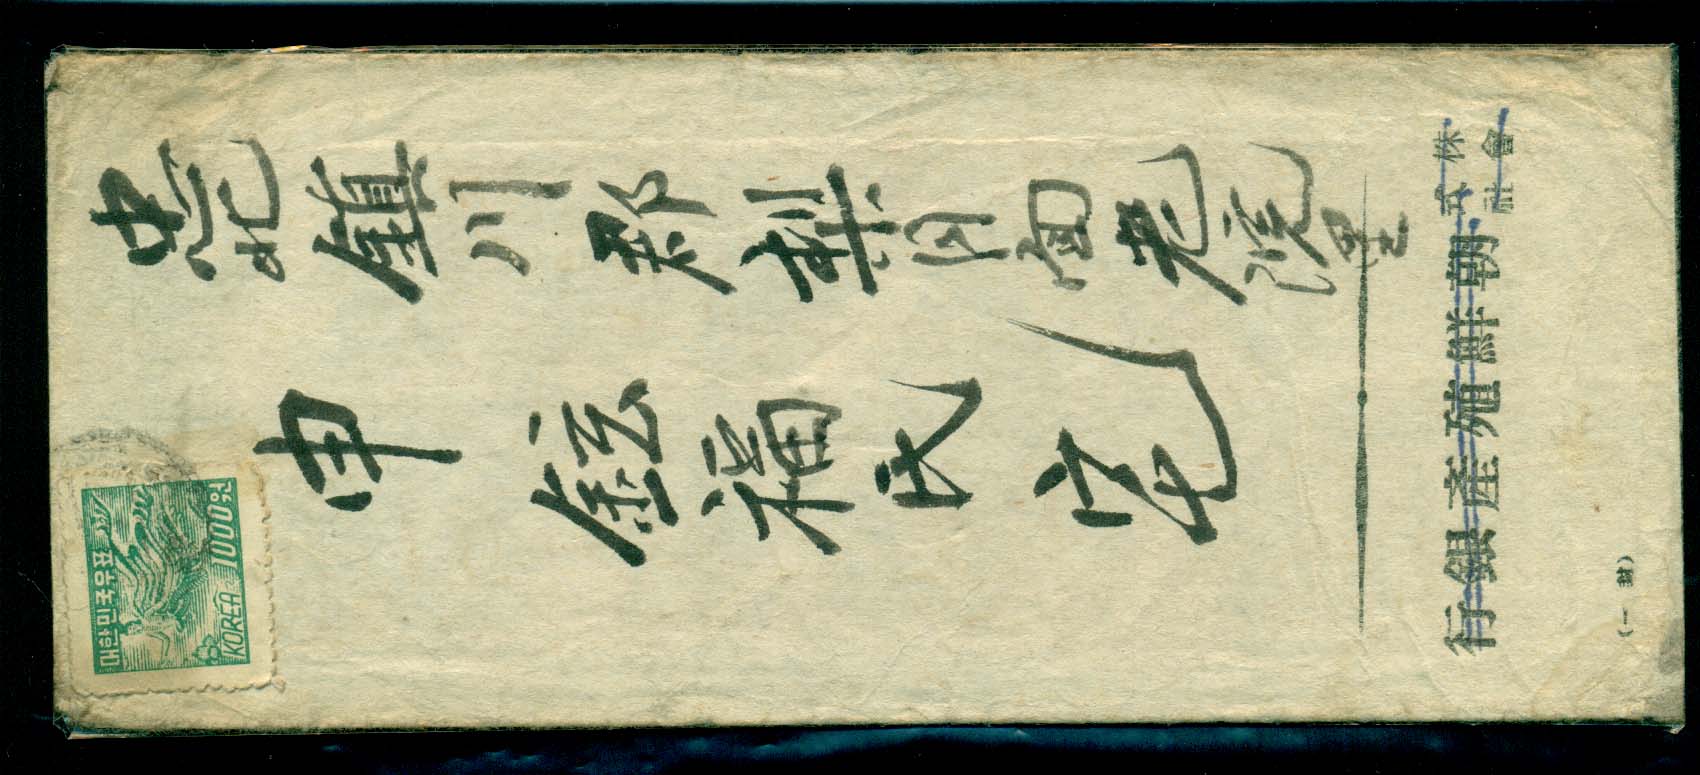 忠北鎭川郡梨月面老院里
申鉉福氏宅
株式會社
朝鮮殖產銀行
(一封)
대한민국우표
1000원
KOREA